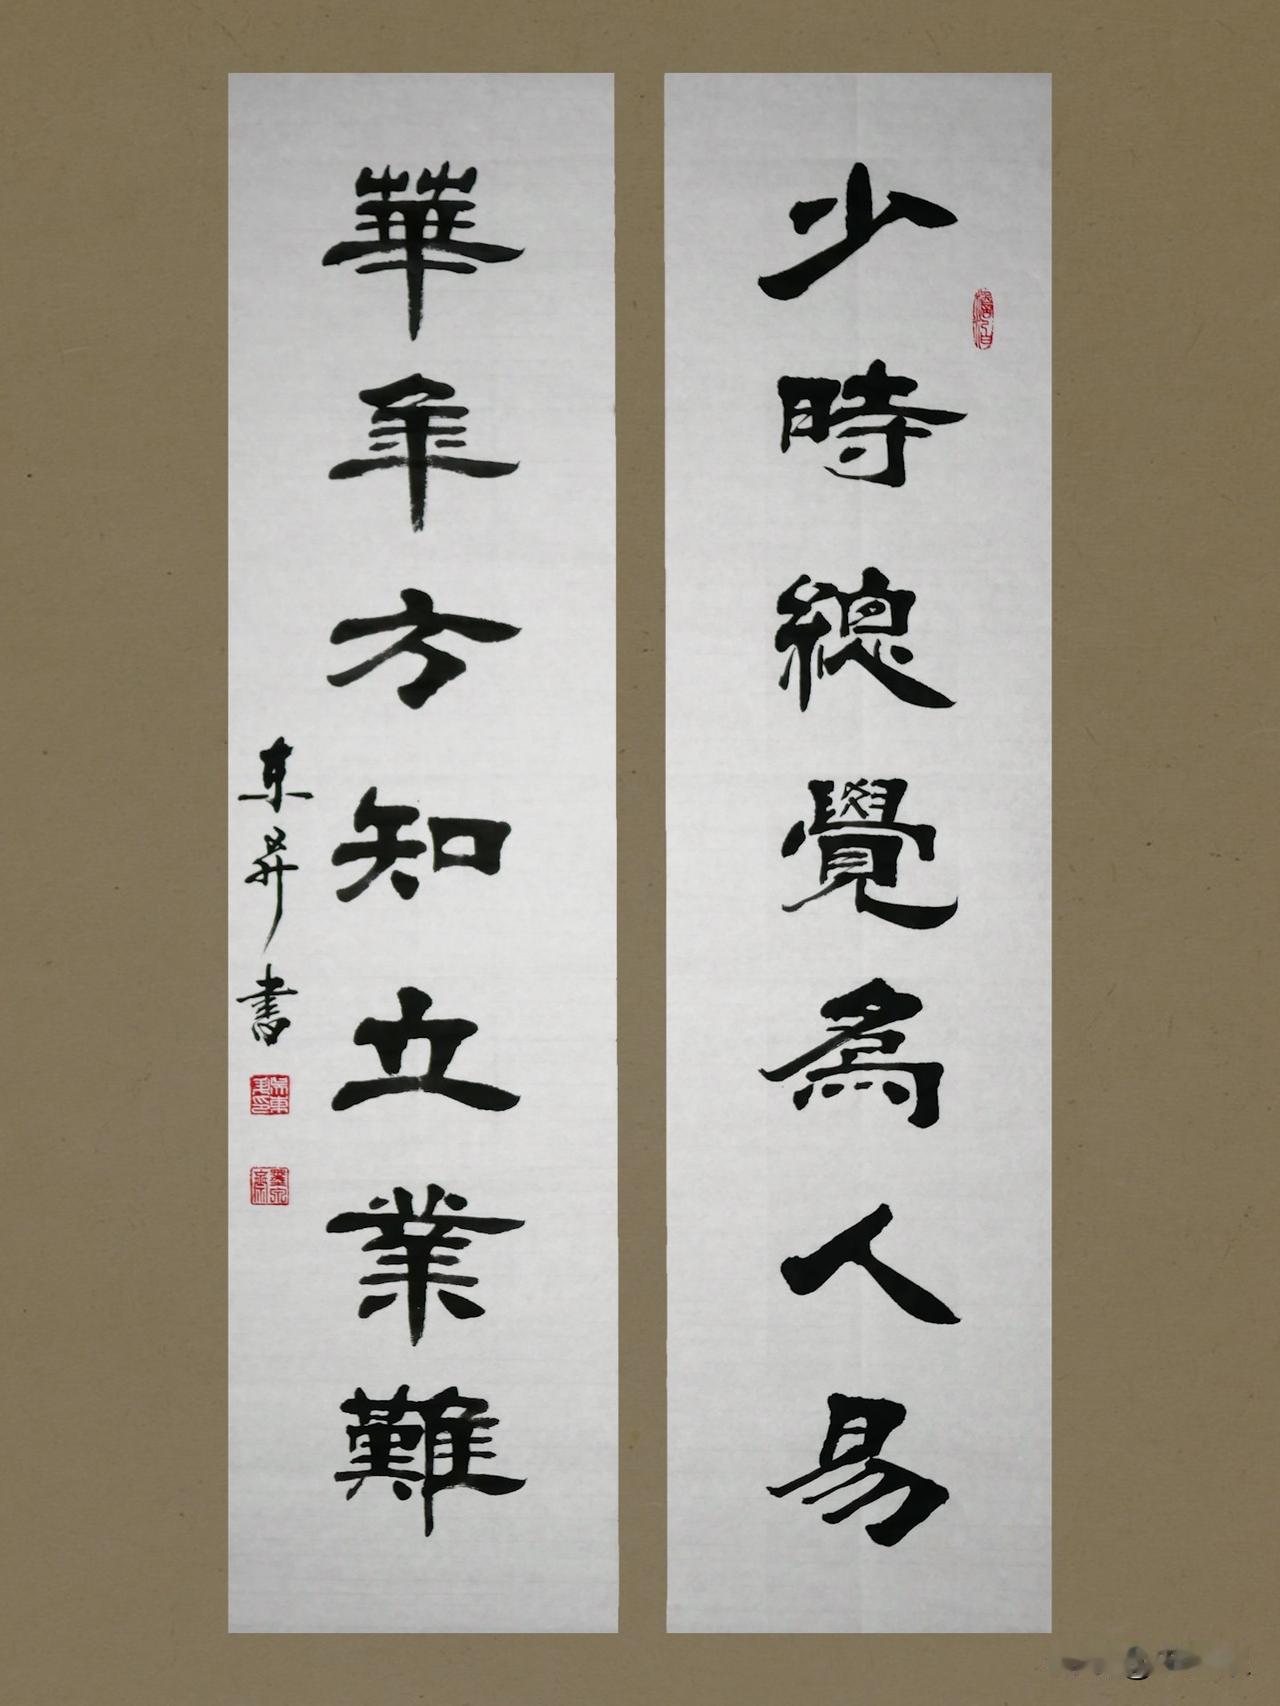 少時總覺為人易
華年方知立業難
東昇書